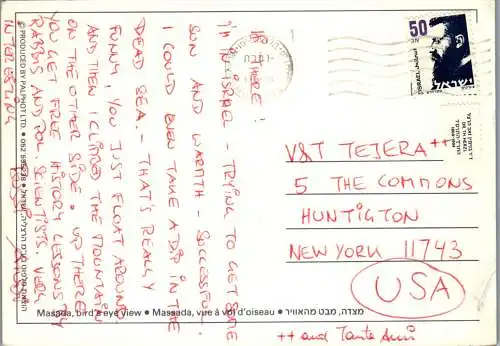 HI THERE!
I'M IN ISRAEL - TRYING TO GET SOME
SUN AND WARMTH - SUCCESSFUL.
I COULD EVEN TAKE A DIP IN THE
DEAD SEA. - THAT'S REALLY
FUNNY, YOU JUST FLOAT AROUND.
AND THEN I CLIMBED THE MOUNTAIN
ON THE OTHER SIDE. UP THERE
YOU GET FREE HISTORY LESSONS BY
RABBIS AND POL. SCIENTISTS. VERY
INTERESTING
50
ISRAEL
ישראל
V&T TEJERA ++
5 THE COMMONS
HUNTIGTON
NEW YORK 11743
USA
++ and Tante Anni
Masada, bird's eye view ● Massada, vue à vol d'oiseau ● מצדה, מבט מהאוויר
© PRODUCED BY PALPHOT LTD.